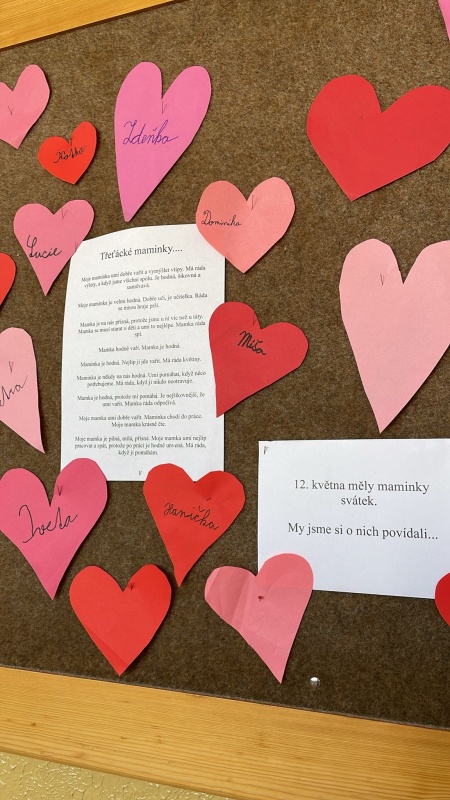 Zdeňka
Katka
Dominika
Lucie
Třeťácké maminky....
Moje mamina umí dobře vařit a vymýšlet vtipy. Má ráda
výlety, a když jsme všichni spolu. Je hodná, šikovná a
usměvavá.
Moje maminka je velmi hodná. Dobře učí, je učitelka. Ráda
se mnou hraje prší.
Mamka je na nás přísná, protože jsme u ní víc než u táty.
Mamka se musí starat o děti a umí to nejlépe. Mamka ráda
spí.
Mamka hodně vaří. Mamka je hodná.
Maminka je hodná. Nejlíp jí jde vařit. Má ráda květiny.
Maminka je někdy na nás hodná. Umí pomáhat, když něco
potřebujeme. Má ráda, když ji nikdo neotravuje.
Mamka je hodná, protože mi pomáhá. Je nejšikovnější, že
umí vařit. Mamka ráda odpočívá.
Moje mamka umí dobře vařit. Maminka chodí do práce.
Moje mamka krásně čte.
Moje mamka je pilná, milá, přísná. Moje mamka umí nejlíp
pracovat a spát, protože po práci je hodně unavená. Má ráda,
když jí pomáhám.
Míša
Iveta
Hanička
12. května měly maminky
svátek.
My jsme si o nich povídali...